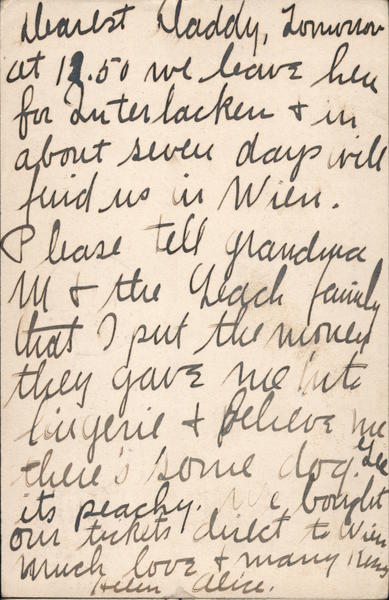 Dearest Daddy, Tomorrow
at 12.50 we leave here
for Interlacken & in
about seven days will
find us in Wien.
Please tell grandma
M & the Leach family
that I put the money
they gave me into
lingerie & believe me
there's some dog. Gee
its peachy. We bought
our tickets direct to Wien
Much love & many kisses
Helen Alice.